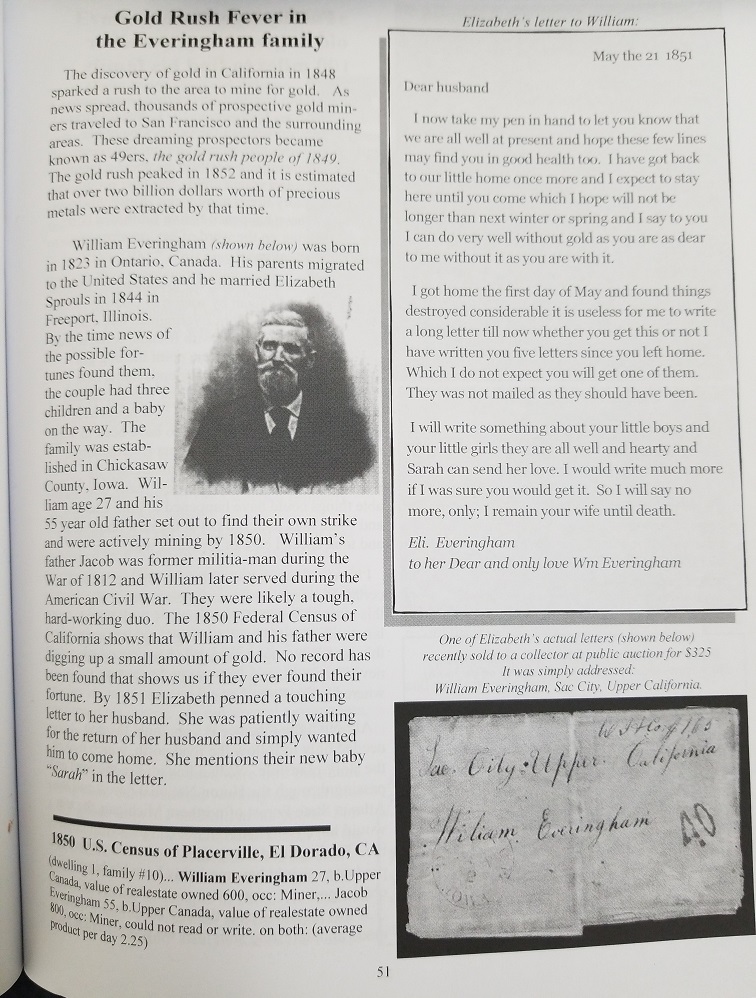 Gold Rush Fever in
the Everingham family
The discovery of gold in California in 1848
sparked a rush to the area to mine for gold. As
news spread, thousands of prospective gold min-
ers traveled to San Francisco and the surrounding
areas. These dreaming prospectors became
known as 49ers, the gold rush people of 1849.
The gold rush peaked in 1852 and it is estimated
that over two billion dollars worth of precious
metals were extracted by that time.
William Everingham (shown below) was born
in 1823 in Ontario, Canada. His parents migrated
to the United States and he married Elizabeth
Sprouls in 1844 in
Freeport, Illinois.
By the time news of
the possible for-
tunes found them,
the couple had three
children and a baby
on the way. The
family was estab-
lished in Chickasaw
County, Iowa. Wil-
liam age 27 and his
55 year old father set out to find their own strike
and were actively mining by 1850. William's
father Jacob was former militia-man during the
War of 1812 and William later served during the
American Civil War. They were likely a tough,
hard-working duo. The 1850 Federal Census of
California shows that William and his father were
digging up a small amount of gold. No record has
been found that shows us if they ever found their
fortune. By 1851 Elizabeth penned a touching
letter to her husband. She was patiently waiting
for the return of her husband and simply wanted
him to come home. She mentions their new baby
"Sarah" in the letter.
1850 U.S. Census of Placerville, El Dorado, CA
(dwelling 1, family #10)... William Everingham 27, b.Upper
Canada, value of realestate owned 600, occ: Miner,... Jacob
Everingham 55, b.Upper Canada, value of realestate owned
800, occ: Miner, could not read or write. on both: (average
product per day 2.25)
Elizabeth's letter to William:
May the 21 1851
Dear husband
I now take my pen in hand to let you know that
we are all well at present and hope these few lines
may find you in good health too. I have got back
to our little home once more and I expect to stay
here until you come which I hope will not be
longer than next winter or spring and I say to you
I can do very well without gold as you are as dear
to me without it as you are with it.
I got home the first day of May and found things
destroyed considerable it is useless for me to write
a long letter till now whether you get this or not I
have written you five letters since you left home.
Which I do not expect you will get one of them.
They was not mailed as they should have been.
I will write something about your little boys and
your little girls they are all well and hearty and
Sarah can send her love. I would write much more
if I was sure you would get it. So I will say no
more, only; I remain your wife until death.
Eli. Everingham
to her Dear and only love Wm Everingham
One of Elizabeth's actual letters (shown below)
recently sold to a collector at public auction for $325
It was simply addressed:
William Everingham, Sac City, Upper California.
Sac. City: Upper. California
Wiliam Everingham
40
51